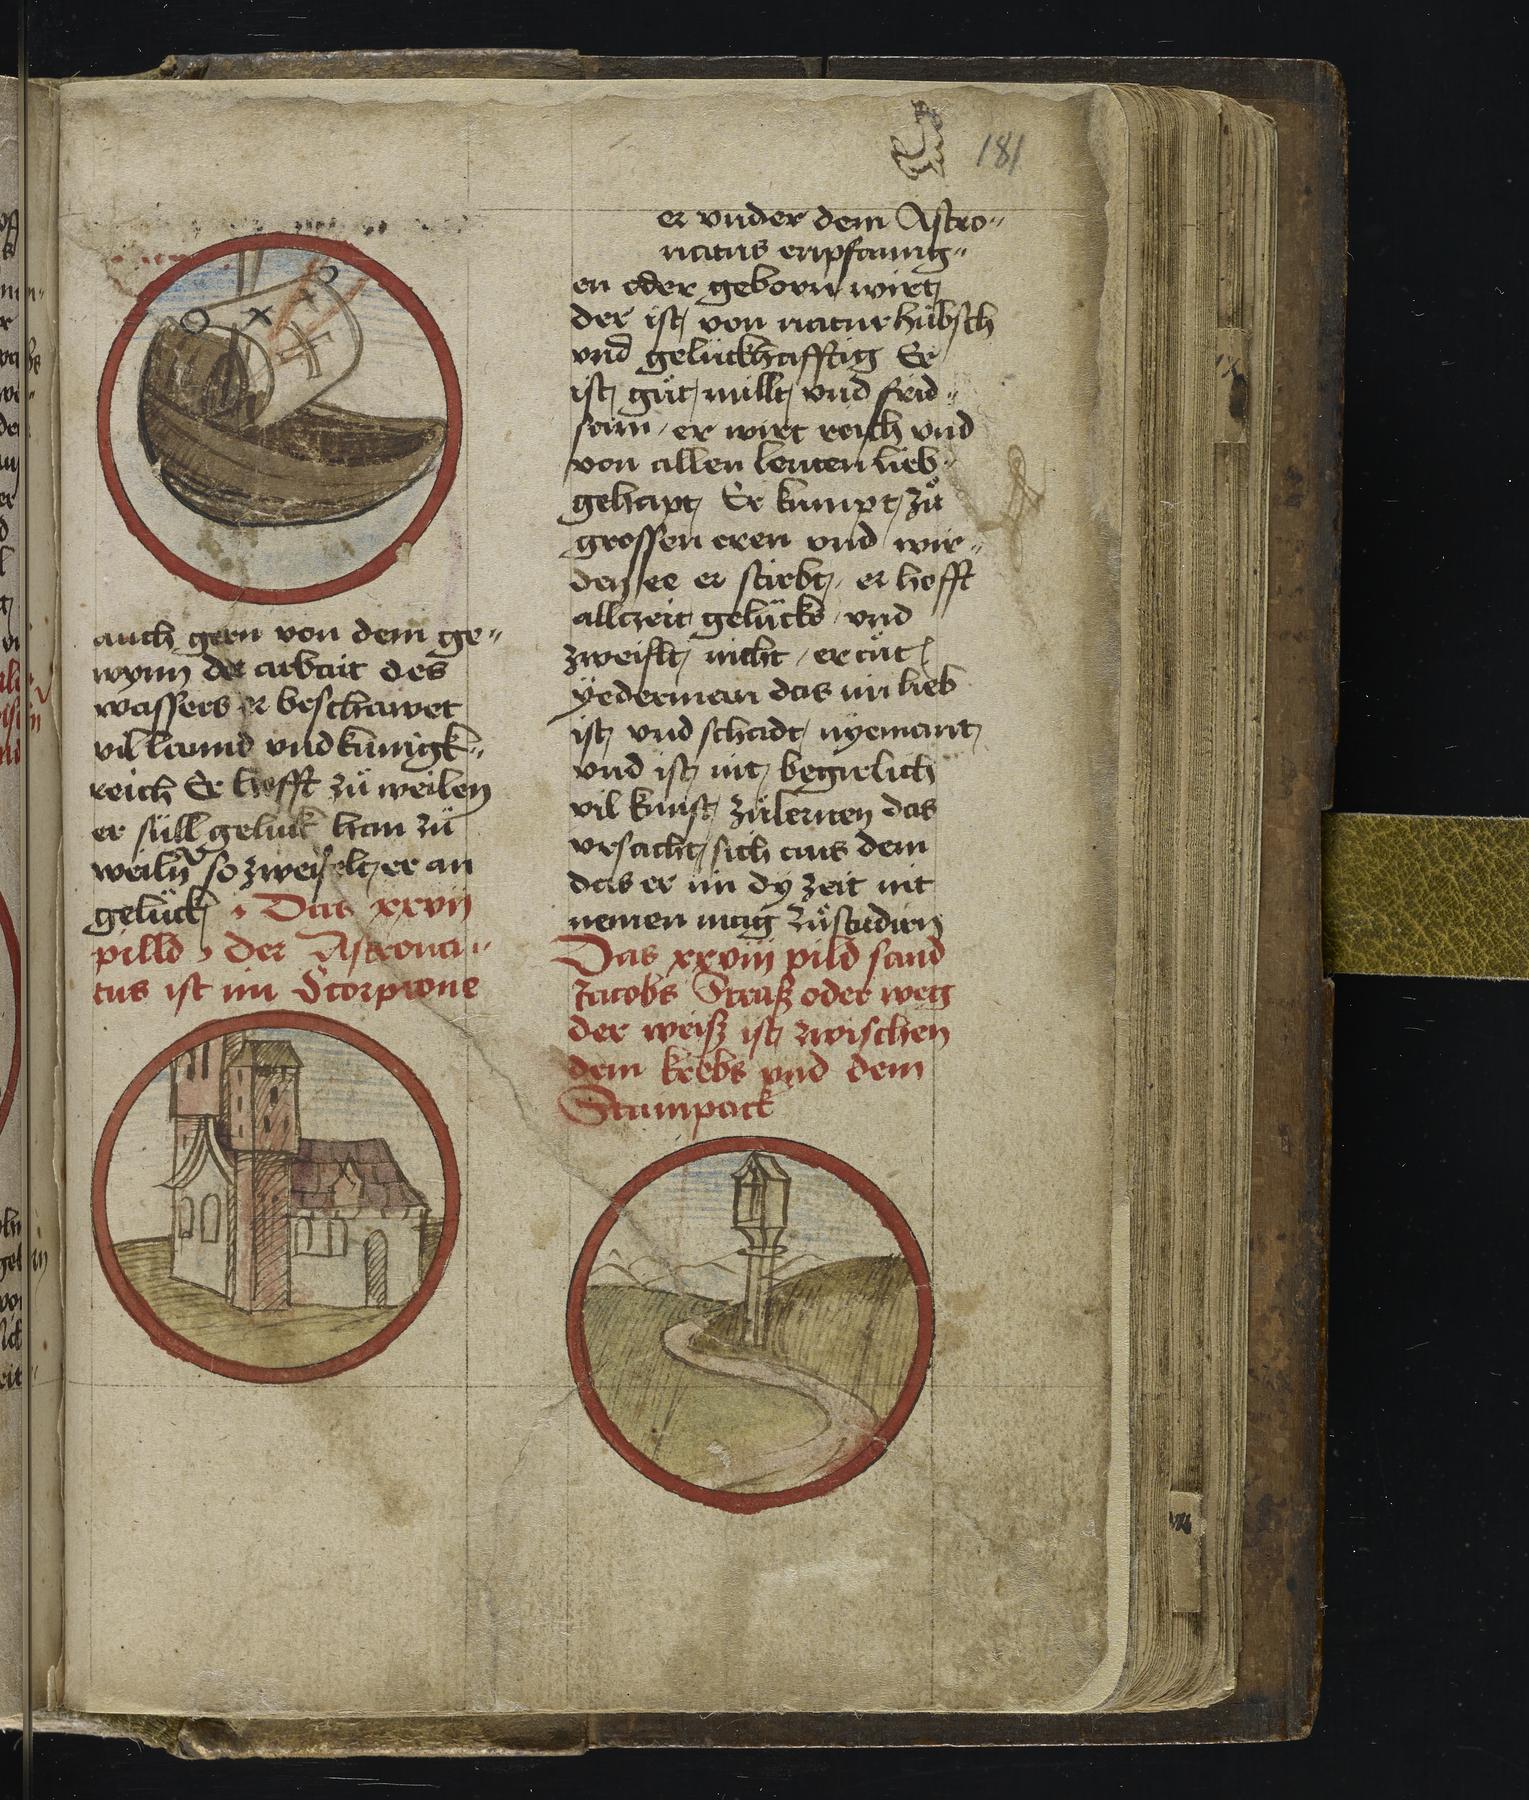 181
auch gern von dem ge-
wynn der arbait des
wassers er beschawet
vil lannd vnd kunigk-
reich Er hofft zů weilen
er süll geluk han zů
weiln so zweifelt er an
gelück Das xxvij
pilld der Astrona-
tus ist im Scorpione
er vnder dem Astro-
natus enpfanng-
en oder geborn wirt
der ist von natur hübsch
vnd gelückhafftig Er
ist gůt millt vnd frid-
sam er wirt reich vnd
von allen leuten lieb
gehapt Er kumpt zů
grossen eren vnd wir-
den ee er stirbt er hofft
allczeit gelücks vnd
zweiflt nicht er tůt
yederman das im lieb
ist vnd schadt nyemant
vnd ist nit begirlich
vil kunst zůlernen das
vrsacht sich aus dem
das er im dy zeit nit
nemen mag zůstudirn
Das xxviij pild sand
Jacobs Straß oder weg
der weiß ist zwischen
dem krebs vnd dem
Stainpock